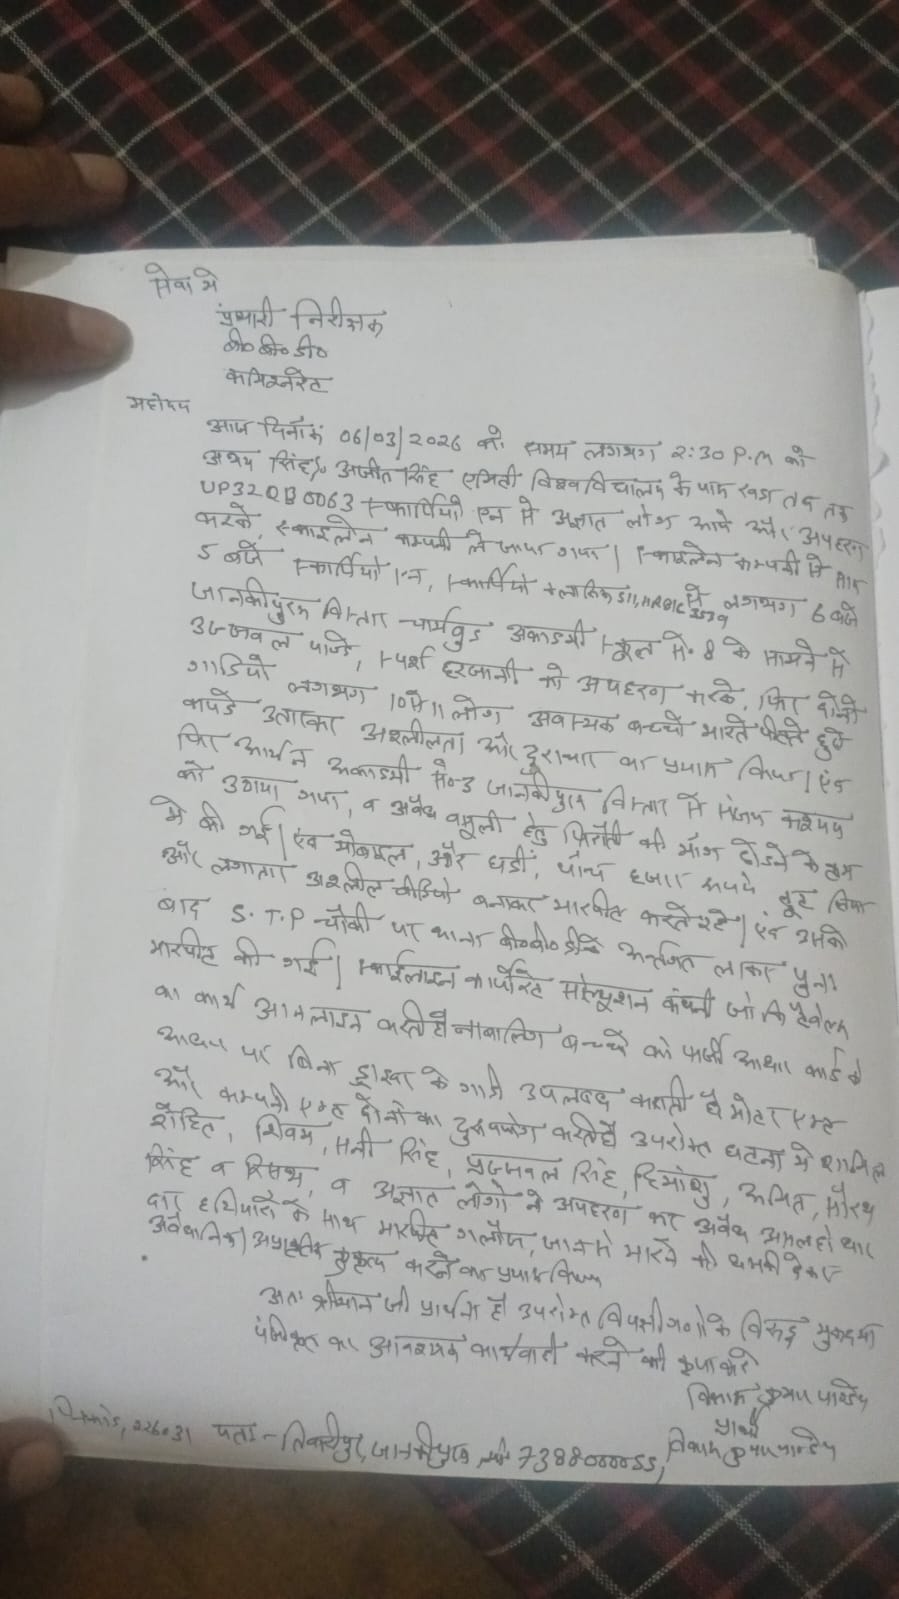 सेवा में
प्रभारी निरीक्षक
बी० बी० डी०
कमिश्नरेट
महोदय
आज दिनाँक 06/03/2026 को समय लगभग 2:30 P.M को
अभय सिंह S/o अजीत सिंह एमिटी विश्वविद्यालय के पास
UP32QB0063 स्कार्पियो एन से अज्ञात लोग आये और अपहरण
करके, स्काइलेन कम्पनी ले जाया गया। स्काइलेन कम्पनी से
5 बजे स्कार्पियो एन, स्कार्पियो क्लासिक से लगभग 6 बजे
जानकीपुरम विस्तार अकाडमी स्कूल से० 8 के सामने से
उज्जवल पाण्डे, स्पर्श हरजानी को अपहरण करके, फिर दोनो
गाडियो लगभग 10 से 11 लोग अवयस्क बच्चो मारते पीटते हुए
कपडे उतारकर अश्लीलता और दुराचार का प्रयास किया। एवं
फिर आर्यन अकाडमी से०-3 जानकीपुरम विस्तार से संजय कश्यप
को उठाया गया, व अवैध वसूली हेतु फिरौती की माँग छोडने के
में की गई। एवं मोबाइल, और घडी, पाँच हजार रूपये लूट लिया
और लगातार अश्लील वीडियो बनाकर मारपीट करते रहे। एवं उसके
बाद S.T.P चौकी पर थाना बी०बी०डी० के अर्न्तगत लाकर पुनः
मारपीट की गई। स्काईलाइन कार्पोरेट सोल्यूशन कंपनी जो कि
का कार्य आनलाइन करती है नाबालिग बच्चो को फर्जी आधार कार्ड के
आधार पर बिना ड्राइवर के गाडी उपलब्ध कराती है मोटर एक्ट
और कम्पनी एक्ट दोनो का दुरुपयोग करती है उपरोक्त घटना में शामिल
रोहित, शिवम, सनी सिंह, प्रज्जवल सिंह, हिमांशु, अमित, सौरभ
सिंह व रिसभ, व अज्ञात लोगो ने अपहरण कर अवैध असलहो धार
दार हथियारो के साथ मारपीट गलौज, जान से मारने की धमकी देकर
अवैधानिक/अप्राकृतिक कुकृत्य करने का प्रयास किया
अतः श्रीमान जी प्रार्थना है उपरोक्त विपक्षीगणो के विरूद्ध मुकदमा
पंजिकृत कर आवश्यक कार्यवाही करने की कृपा करे
विकास कुमार पाण्डेय
प्रार्थी
विकास कुमार पाण्डेय
पिनकोड, 226031 पता:- जानकीपुरम, मो० 7388000055,